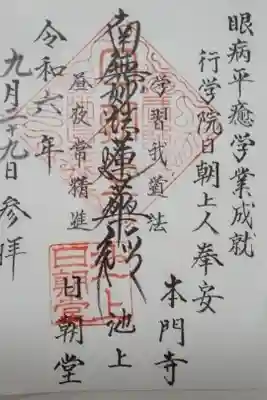 眼病平癒学業成就
行学院日朝上人奉安
本門寺
学習我道法
南無妙法蓮華経
池上
昼夜常精進
日朝堂
令和六年
九月二十九日 参拝